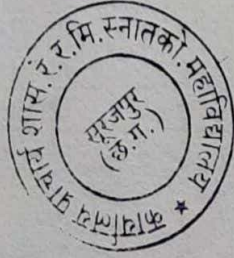 कार्यालय प्राचार्य शास. रे. र. मि. स्नातको. महाविद्यालय ★
सूरजपुर
(छ.ग.)